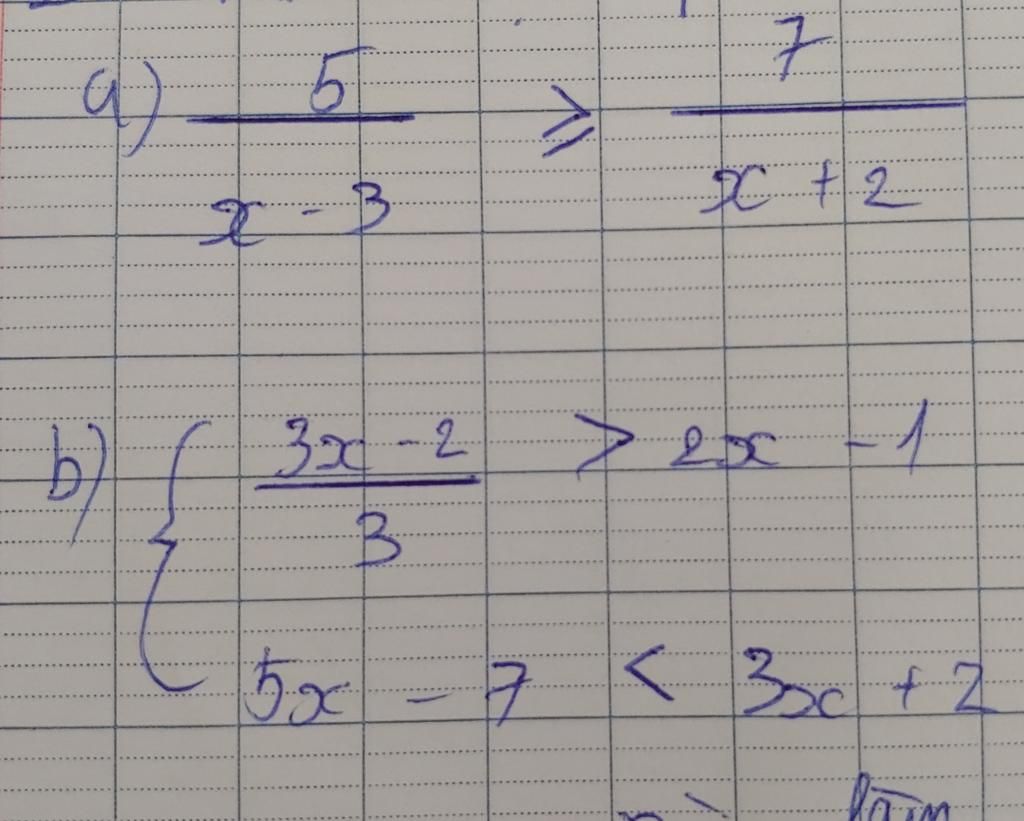 a) 5/(x - 3) ≥ 7/(x + 2)
b) { (3x - 2)/3 > 2x - 1
5x - 7 < 3x + 2